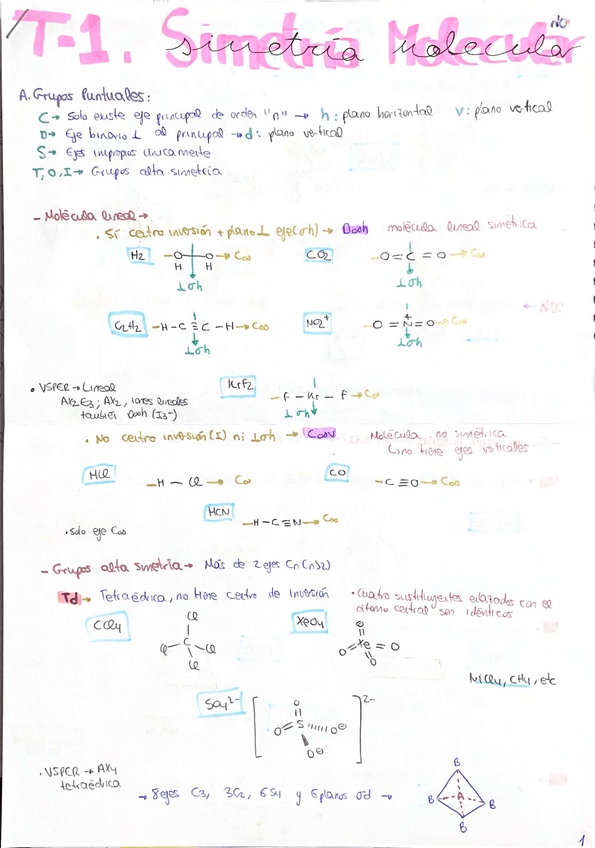 No
T-1. Simetría Molecular
simetría molecular
A. Grupos Puntuales:
C → Solo existe eje principal de orden "n" → h: plano horizontal v: plano vertical
D → Eje binario ⊥ al principal → d: plano vertical
S → Ejes impropios únicamente
T, O, I → Grupos alta simetría
- Molécula lineal →
· Sí centro inversión + plano ⊥ eje (σh) → D∞h molécula lineal simétrica
H2 -O-O → C∞ CO2 -O=C=O → C∞
H H
⊥σh ⊥σh
C2H2 -H-C≡C-H → C∞ NO2+ -O=N=O → C∞
+
⊥σh ⊥σh
• VSPER → Lineal KrF2
AX2E3; AX2, iones lineales -F-Kr-F → C∞
también D∞h (I3-) ⊥σh
· No centro inversión (I) ni ⊥σh → C∞v Molécula, no simétrica
↳ no tiene ejes verticales
HCl -H-Cl → C∞ CO -C≡O → C∞
HCN -H-C≡N → C∞
· Solo eje C∞
- Grupos alta simetría → Más de 2 ejes Cn (n>2)
Td → Tetraédrica, no tiene centro de inversión · Cuatro sustituyentes enlazados con el
átomo central son idénticos
CCl4 Cl XeO4 O
Cl-C-Cl O=Xe=O
Cl O
NiCl4, CH4, etc
SO4 2- 2-
O
O=S O⊖
O⊖
· VSPER → AX4
tetraédrica
→ 8 ejes C3, 3C2, 6S4 y 6 planos σd →
B
B A B
B
1